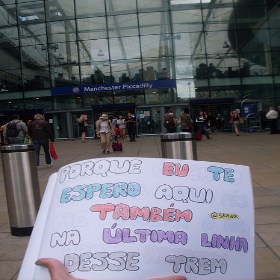 Manchester Piccadilly
PORQUE EU TE
ESPERO AQUI
TAMBÉM
NA ÚLTIMA LINHA
DESSE TREM